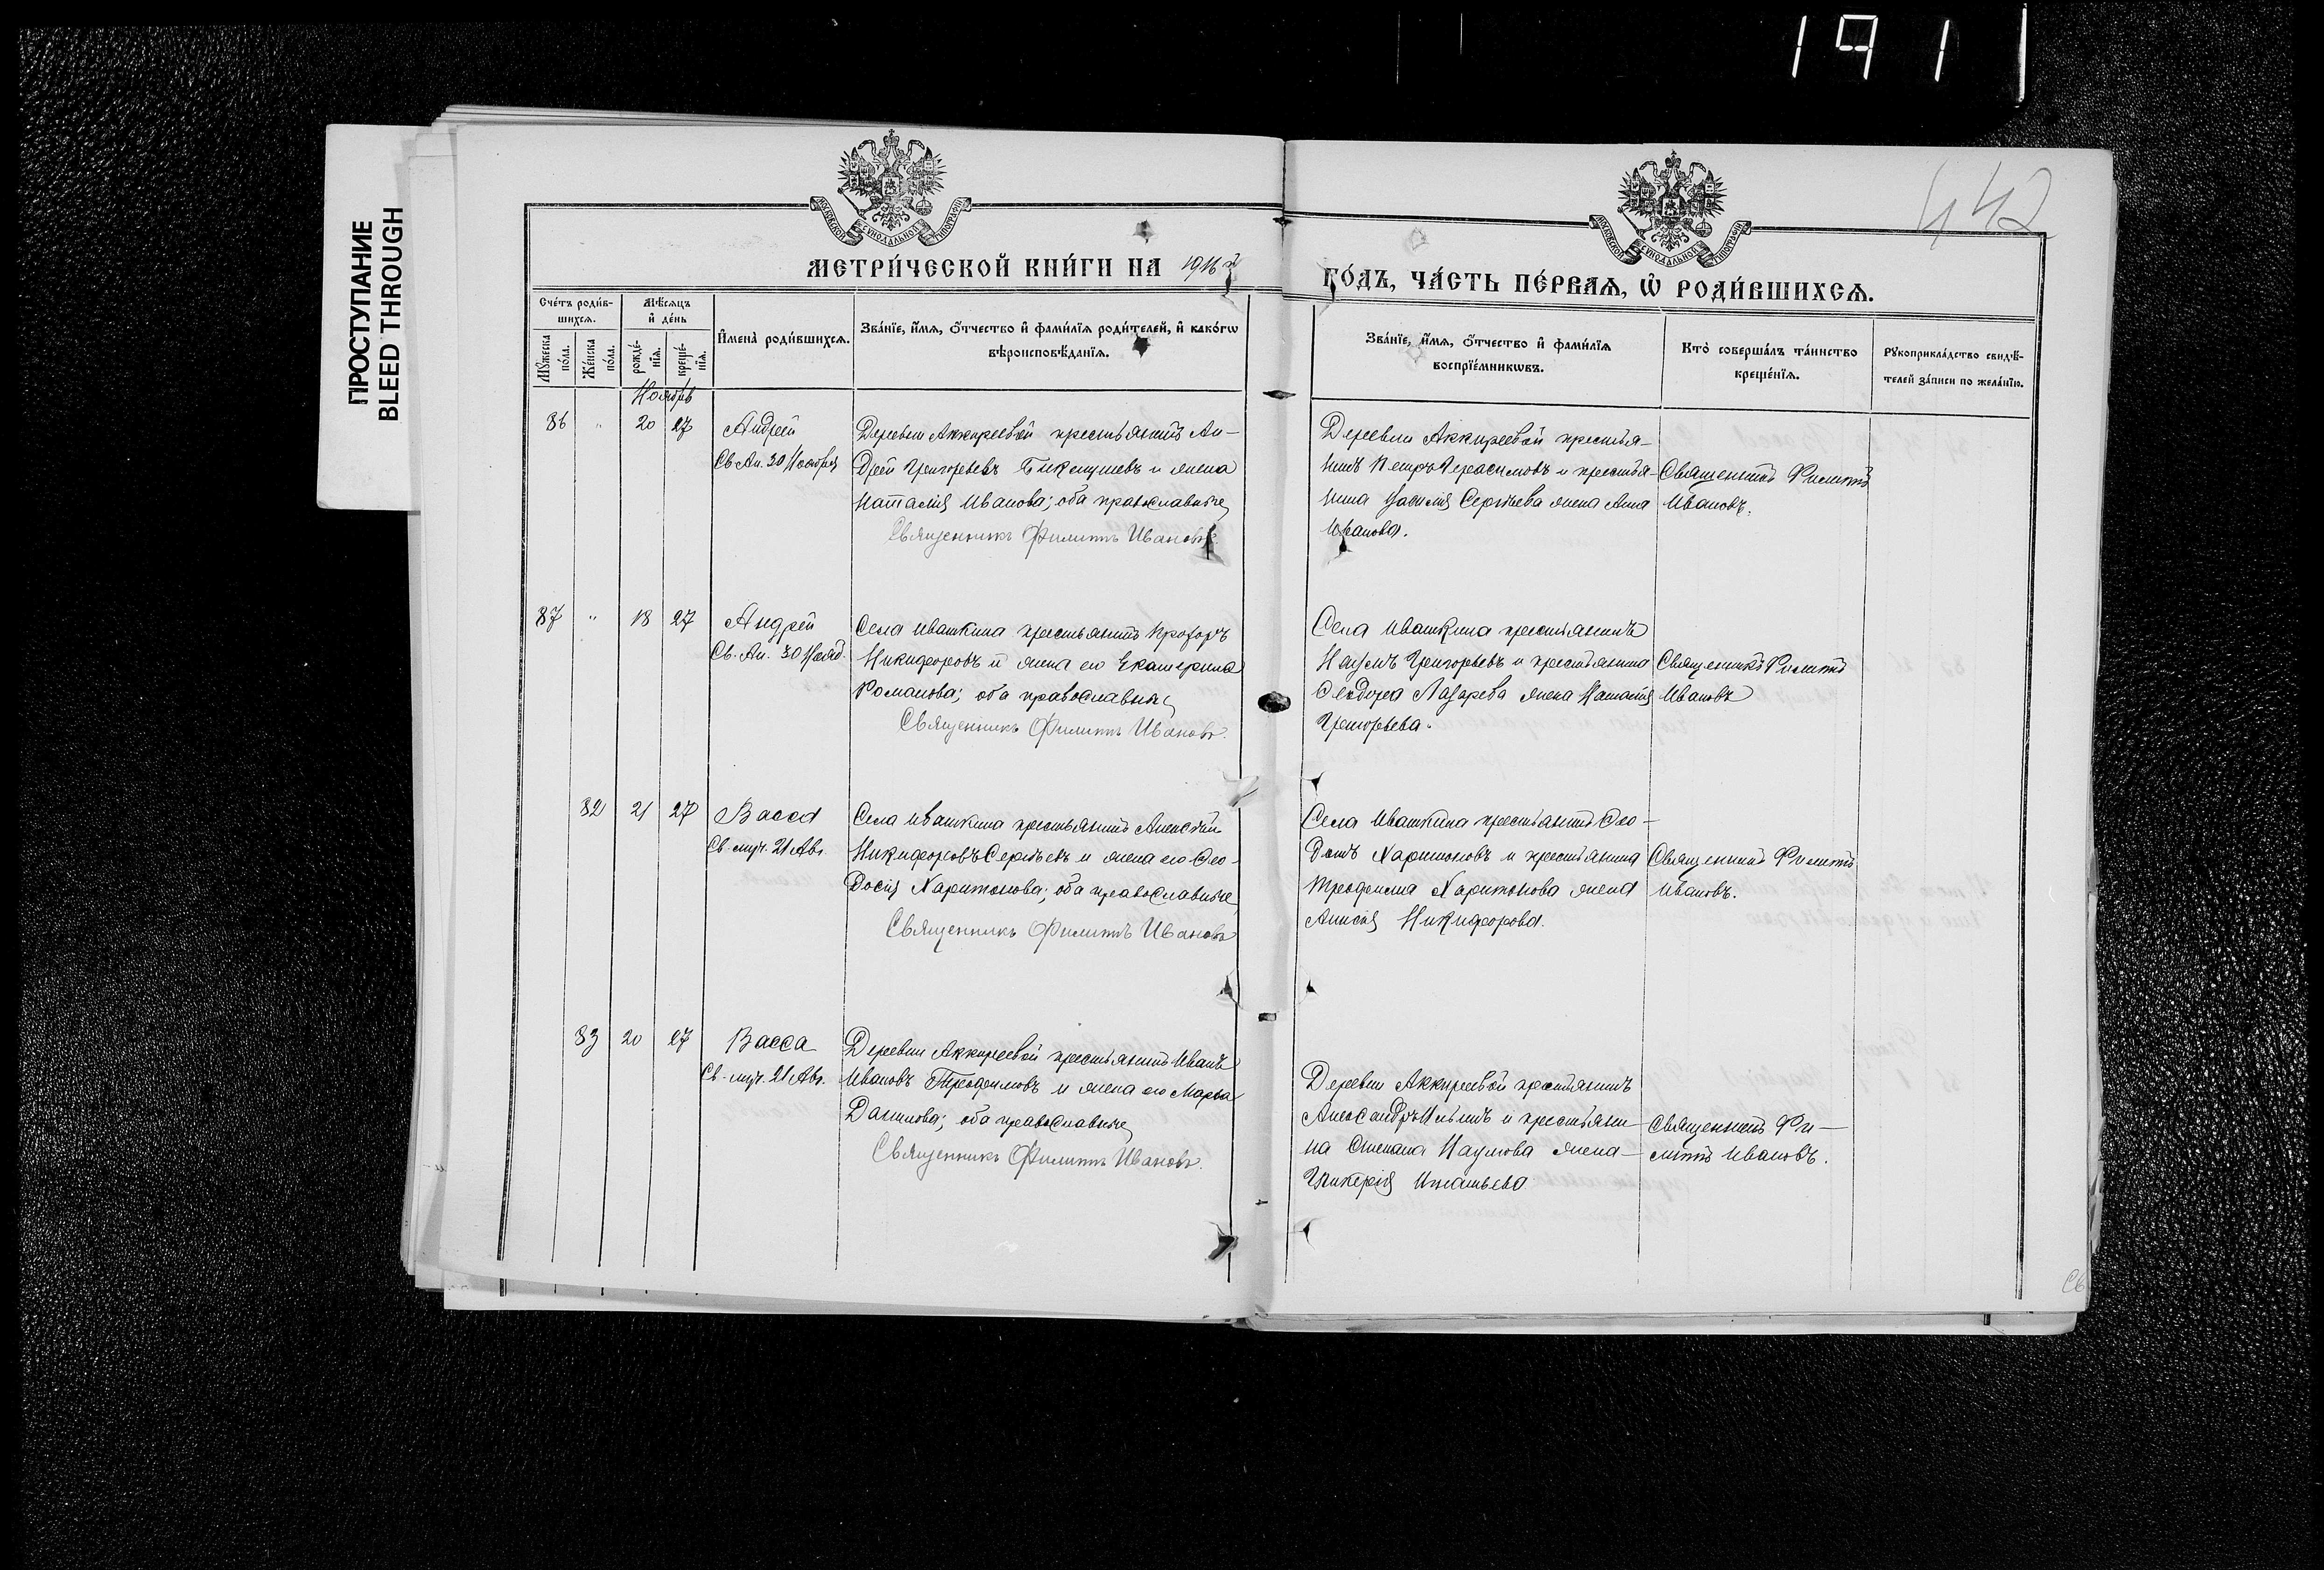 191
ПРОСТУПАНИЕ
BLEED THROUGH
442
МОСКОВСКОЙ СѴНОДАЛЬНОЙ ТИПОГРАФІИ
МОСКОВСКОЙ СѴНОДАЛЬНОЙ ТИПОГРАФІИ
МЕТРИ́ЧЕСКОЙ КНИ́ГИ НА 1916 й
ГО́ДЪ, ЧА́СТЬ ПЕ́РВАѦ, Ѡ҆ РОДИ́ВШИХСѦ.
Сче́тъ роди́в-
шихсѧ.
Мѣ́сѧцъ
и҆ де́нь
Мꙋ́жеска
по́ла.
Же́нска
по́ла.
рожде́-
нїѧ.
креще́-
нїѧ.
И҆мена̀ роди́вшихсѧ.
Зва́нїе, и҆́мѧ, ѻ҆́тчество и҆ фами́лїѧ роди́телей, и҆ како́гѡ
вѣроисповѣ́данїѧ.
Зва́нїе, и҆́мѧ, ѻ҆́тчество и҆ фами́лїѧ
воспрїе́мникѡвъ.
Кто̀ соверша́лъ та́инство
креще́нїѧ.
Рꙋкоприкла́дство свидѣ́-
телей за́писи по жела́нїю.
Ноябрь
86 " 20 27 Андрей
Св. Ап. 30 Ноября
Деревни Аккиреевой крестьянинъ Ан-
дрей Григорьевъ и жена
Наталія Иванова; оба православные
Священникъ Филиппъ Ивановъ.
Деревни Аккиреевой крестья-
нинъ Петръ Герасимовъ и крестья-
нина Василія Сергѣева жена Анна
Иванова.
Священникъ Филиппъ
Ивановъ.
87 " 18 27 Андрей
Св. Ап. 30 Нояб.
Села Ивашкина крестьянинъ Прохоръ
Никифоровъ и жена его Екатерина
Романова; оба православные
Священникъ Филиппъ Ивановъ.
Села Ивашкина крестьянинъ
Наумъ Григорьевъ и крестьянина
Ѳеодора Лазарева жена Наталія
Григорьева.
Священникъ Филиппъ
Ивановъ
82 21 27 Васса
Св. муч. 21 Авг.
Села Ивашкина крестьянинъ Алексѣй
Никифоровъ Сергѣевъ и жена его Ѳео-
досія Харитонова; оба православные
Священникъ Филиппъ Ивановъ
Села Ивашкина крестьянинъ Ѳео-
Харитоновъ и крестьянина
Трофима Харитонова жена
Анисія Никифорова.
Священникъ Филиппъ
Ивановъ.
83 20 27 Васса
Св. муч. 21 Авг.
Деревни Аккиреевой крестьянинъ Иванъ
Ивановъ Трофимовъ и жена его Марѳа
Данилова; оба православные
Священникъ Филиппъ Ивановъ.
Деревни Аккиреевой крестьянинъ
Александръ Ильинъ и крестьяни-
на Степана Наумова жена
Гликерія Игнатьева
Священникъ Фи-
липпъ Ивановъ.